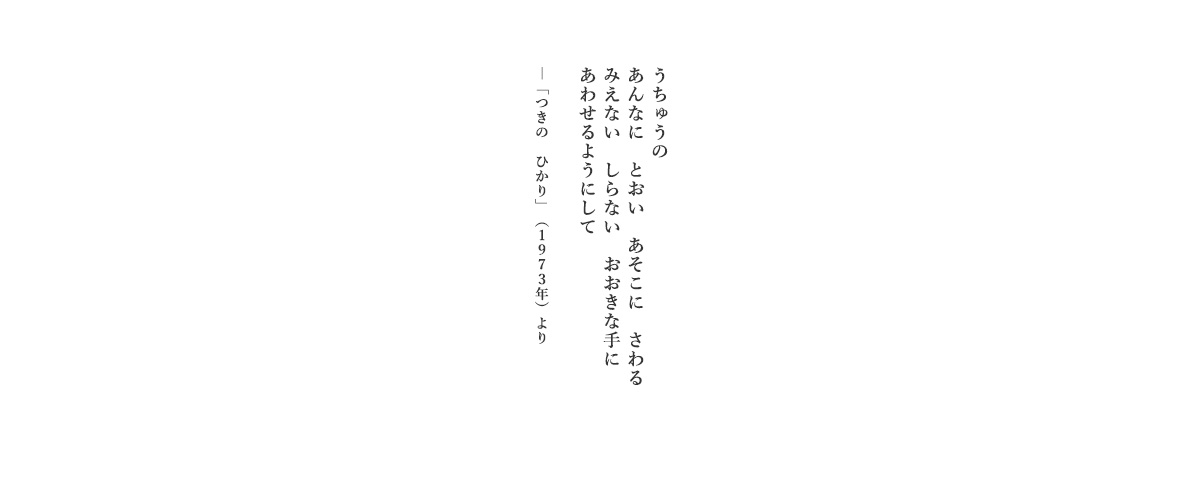 うちゅうの
あんなに　とおい　あそこに　さわる
みえない　しらない　おおきな手に
あわせるようにして
―「つきの　ひかり」（1973年）より